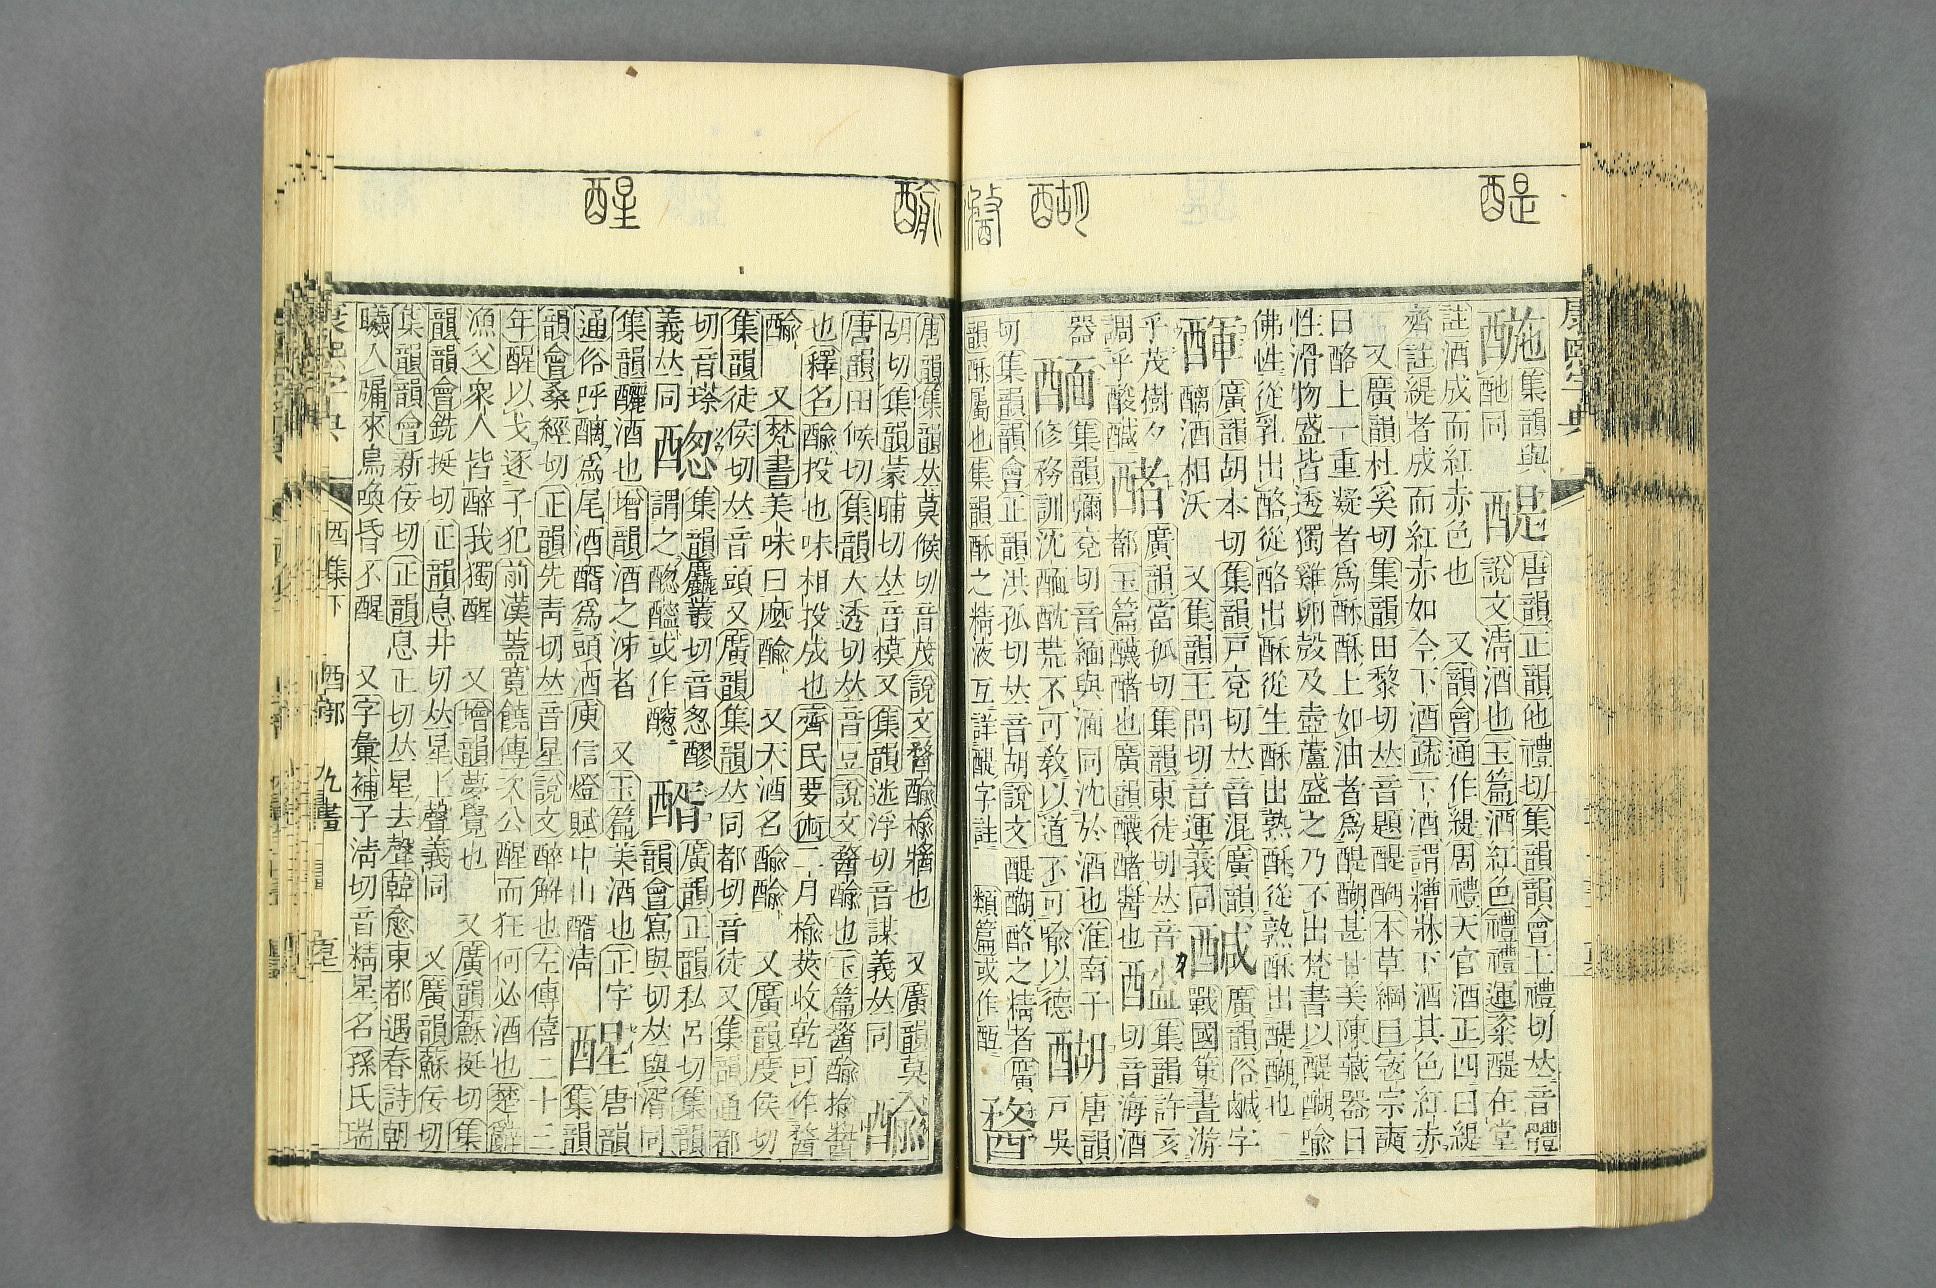 醍
醐
醔
醒
康熙字典
酏集韻與酏同 醍唐韻正韻他禮切集韻韻會土禮切𠀤音體
說文淸酒也玉篇酒紅色禮禮運粢醍在堂
註酒成而紅赤色也 又韻會通作緹周禮天官酒正四曰緹
齊註緹者成而紅赤如今下酒疏下酒謂糟牀下酒其色紅赤
又廣韻杜奚切集韻田黎切𠀤音題醍醐本草綱目宼宗奭
曰酪上一重凝者爲酥酥上如油者爲醍醐甚甘美陳藏器曰
性滑物盛皆透獨雞卵殼及壺蘆盛之乃不出梵書以醍醐喩
佛性從乳出酪從酪出酥從生酥出熟酥從熟酥出醍醐也
廣韻胡本切集韻戸兗切𠀤音混廣韻 廣韻俗鹹字
醨酒相沃 又集韻王問切音運義同 戰國策晝游
乎茂樹夕 廣韻當孤切集韻東徒切𠀤音 集韻許亥
調乎酸鹹 都玉篇醲醏也廣韻醲醏醬也 切音海酒
器 集韻彌兗切音緬與湎同沈於酒也淮南子 唐韻
修務訓沈醽耽荒不可敎以道不可喩以德醐戸吳
切集韻韻會正韻洪孤切𠀤音胡說文醍醐酪之精者廣
韻酥屬也集韻酥之精液互詳醍字註 類篇或作
唐韻集韻𠀤莫候切音茂說文 醔 醬也 又廣韻莫
胡切集韻蒙晡切𠀤音模又集韻迷浮切音謀義𠀤同
唐韻田候切集韻大透切𠀤音豆說文 也玉篇
也釋名 投也味相投成也齊民要術二月楡莢收乾可作
又梵書美味曰 又天酒名 又廣韻度侯切
集韻徒侯切𠀤音頭又廣韻集韻𠀤同都切音徒又集韻通都
切音 集韻麤叢切音怱 醑廣韻正韻私呂切集韻
義𠀤同 謂之 或作 韻會寫與切𠀤與湑同
集韻釃酒也增韻酒之泲者 又玉篇美酒也正字 醒唐韻
通俗呼 爲尾酒醑爲頭酒庾信燈賦中山醑淸 集韻
韻會桑經切正韻先靑切𠀤音星說文醉解也左傳僖二十三
年醒以戈逐子犯前漢蓋寬饒傳次公醒而狂何必酒也楚辭
漁父衆人皆醉我獨醒 又增韻夢覺也 又廣韻蘇挺切集
韻韻會銑挺切正韻息井切𠀤星上聲義同 又廣韻蘇佞切
集韻韻會新佞切正韻息正切𠀤星去聲韓愈東都遇春詩朝
曦入牖來鳥喚昏不醒 又字彙補子淸切音精星名孫氏瑞
康熙字典 酉集下 酉部 九畫